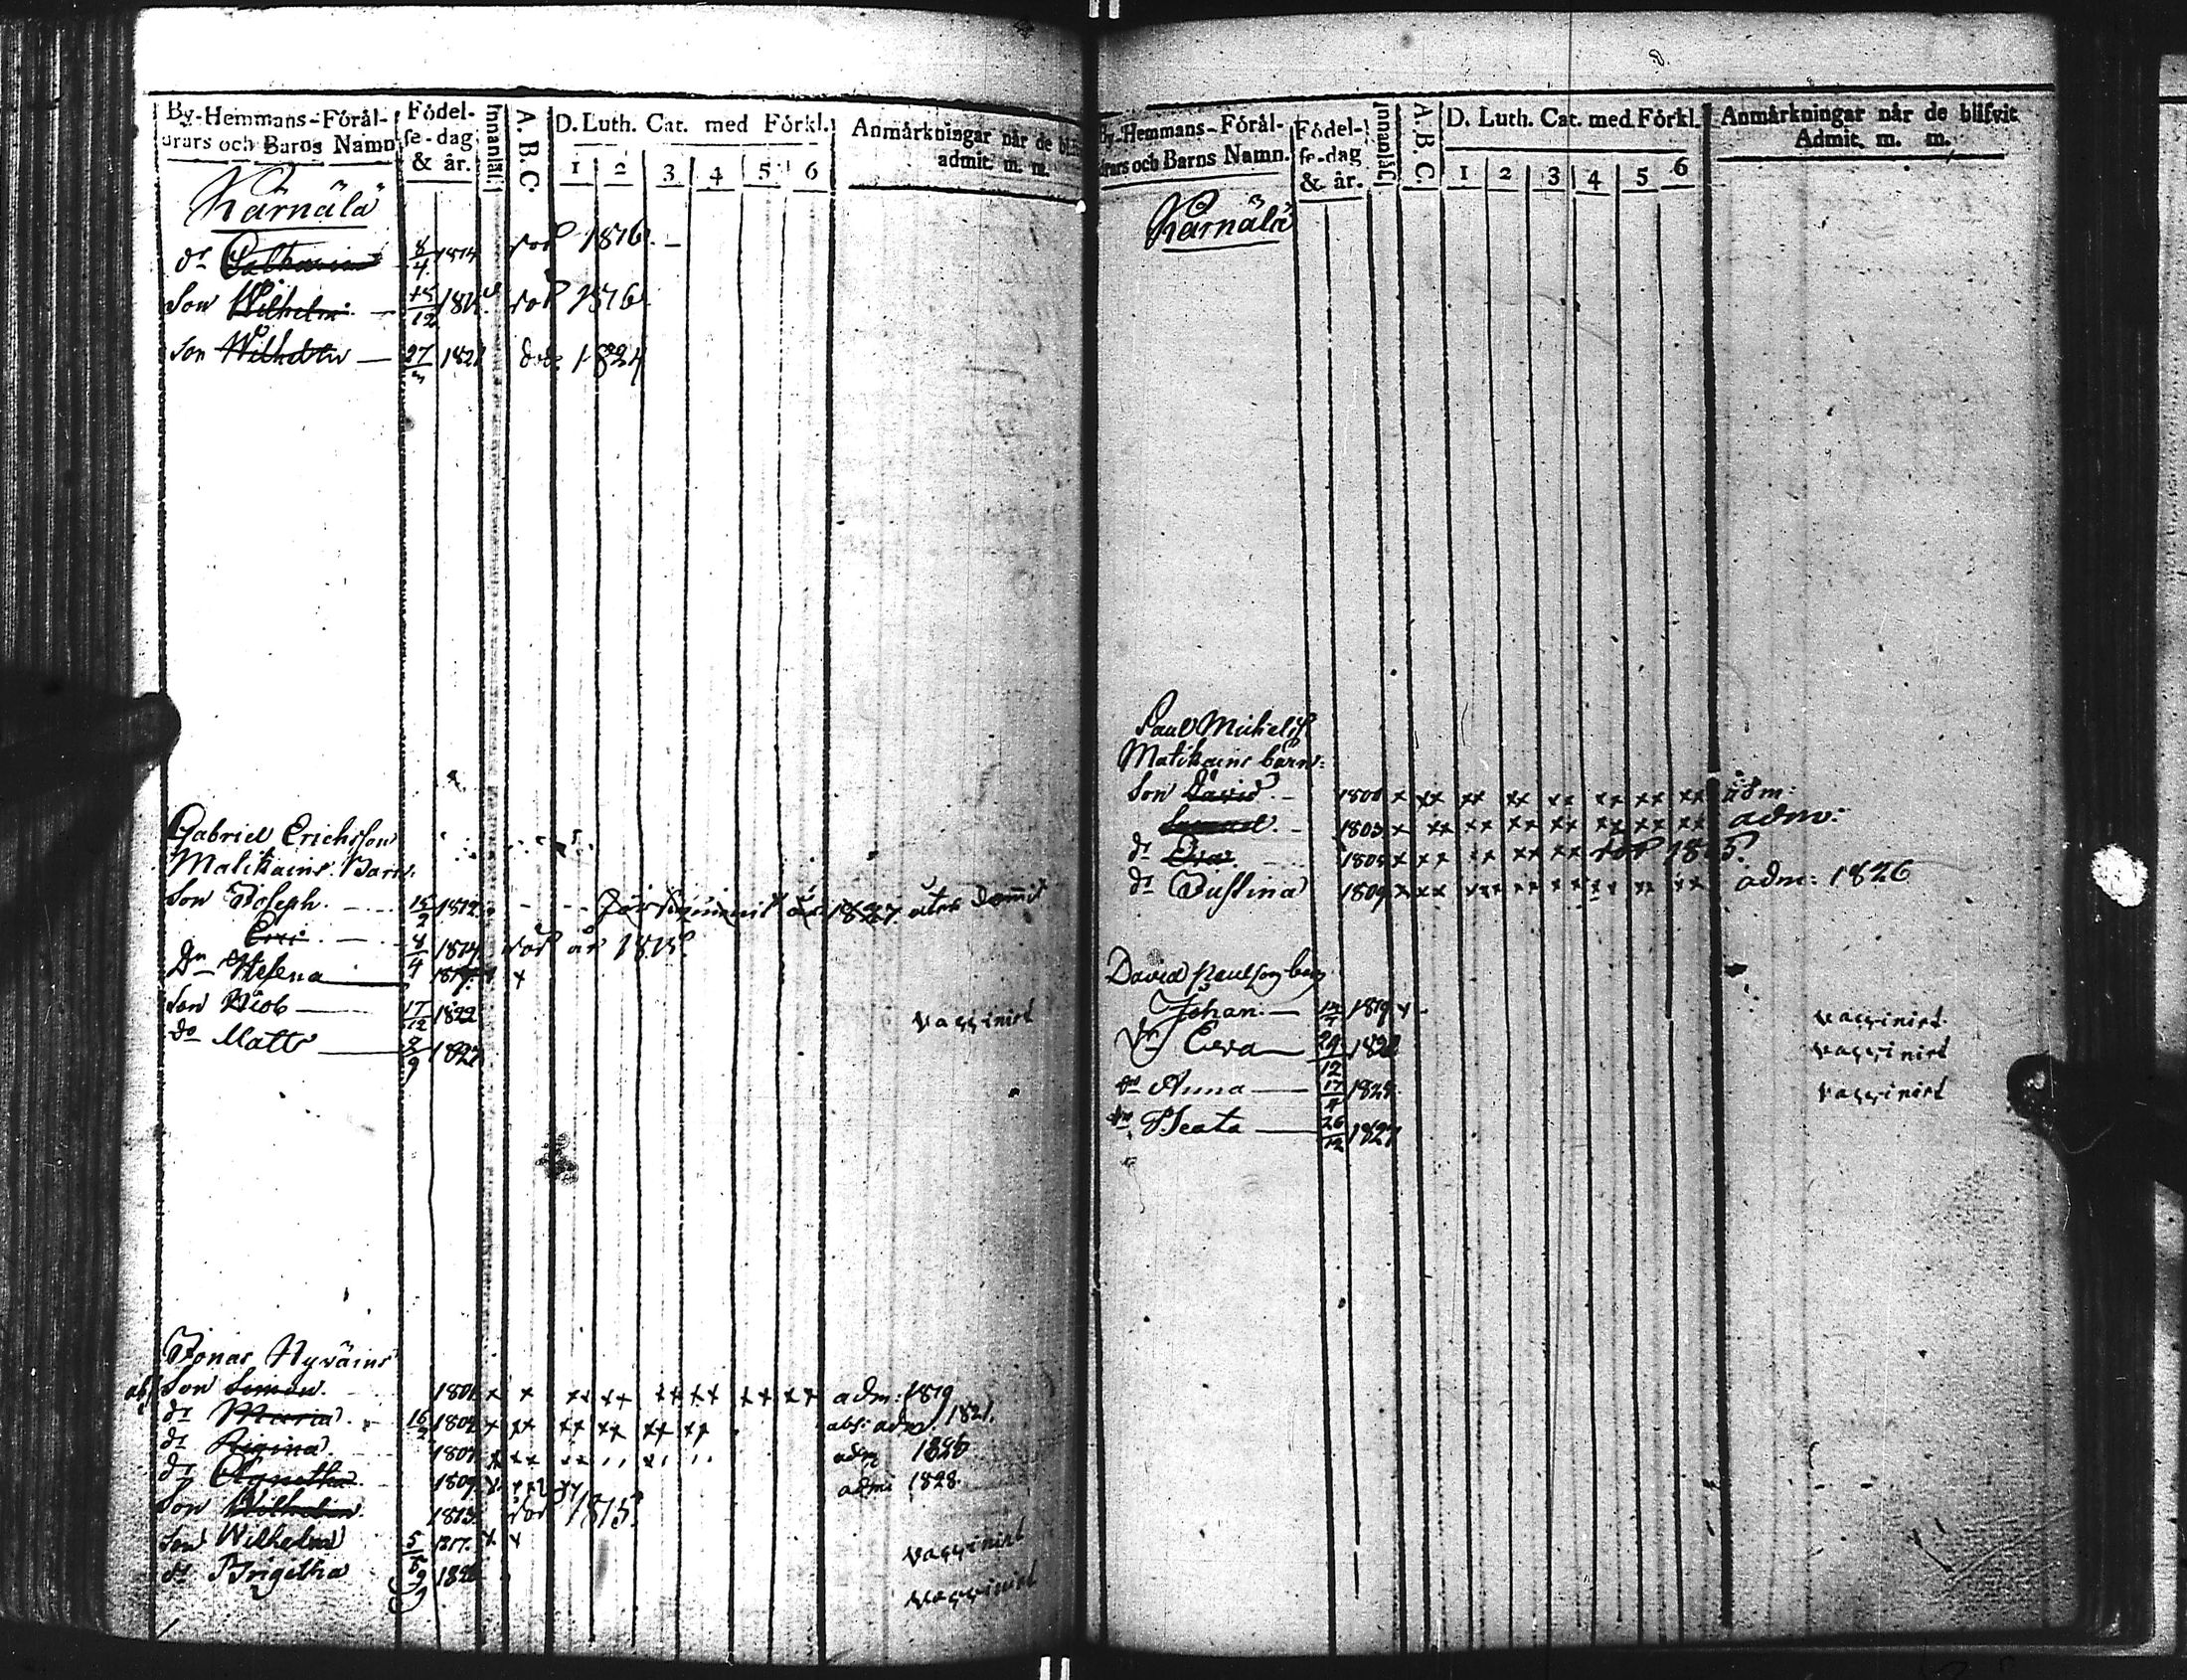 By-Hemmans-Föräl-
drars och Barns Namn
Födel-
se-dag
& år.
Innanläs.
A. B. C.
D. Luth. Cat. med Förkl.
1 2 3 4 5 6
Anmärkningar når de
admit. m. m.
Kärnälä
dr Catharina 8/4 1814 död 1816.
Son Wilhelm 15/12 död 1816
Son Wilhelm 27 182 död 1824
Gabriel Erichsson
Matikains Barn:
Son Joseph. 15/2 1812.
Eric 8/4 1814 död år 1815.
Dr Helena x
Son Hiob 17/12 1822 vaccinirt
do Matts 8/9 182
Jonas Hyväins
Son Simon. 1801 x x xx xx xx xx xx xx adm: 1819
dr Maria. 16/2 1804 x xx xx xx xx xx abs: adm 1821.
dr Regina. 1807 adm
dr Agnetha 1809 adm: 1828
Son Wilhelm 1813 död 1815.
Son Wilhelm 5/5 1817. x x vaccinirt
dr Brigetha 9/9 182 vaccinirt
By-Hemmans-Föräl-
drars och Barns Namn.
Födel-
se-dag
& år.
Innanläs
A. B. C.
D. Luth. Cat. med Förkl.
1 2 3 4 5 6
Anmärkningar når de blifvit
Admit. m. m.
Kärnälä
Paul Michelss
Matikains barn:
Son David. 1800 x xx xx xx xx xx xx xx adm:
Samuel. 1803 x xx xx xx xx xx xx xx adm:
dr Eva. 1805 x xx xx xx xx död 1815.
dr Justina 1809 x xx xxx xx xx xx xx xx adm: 1826
David Paulsons barn
Johan. 1819 x vaccinirt
Dr Eva 29/12 182 vaccinirt
dr Anna 17/4 182 vaccinirt
dr Beata 26/12 1827